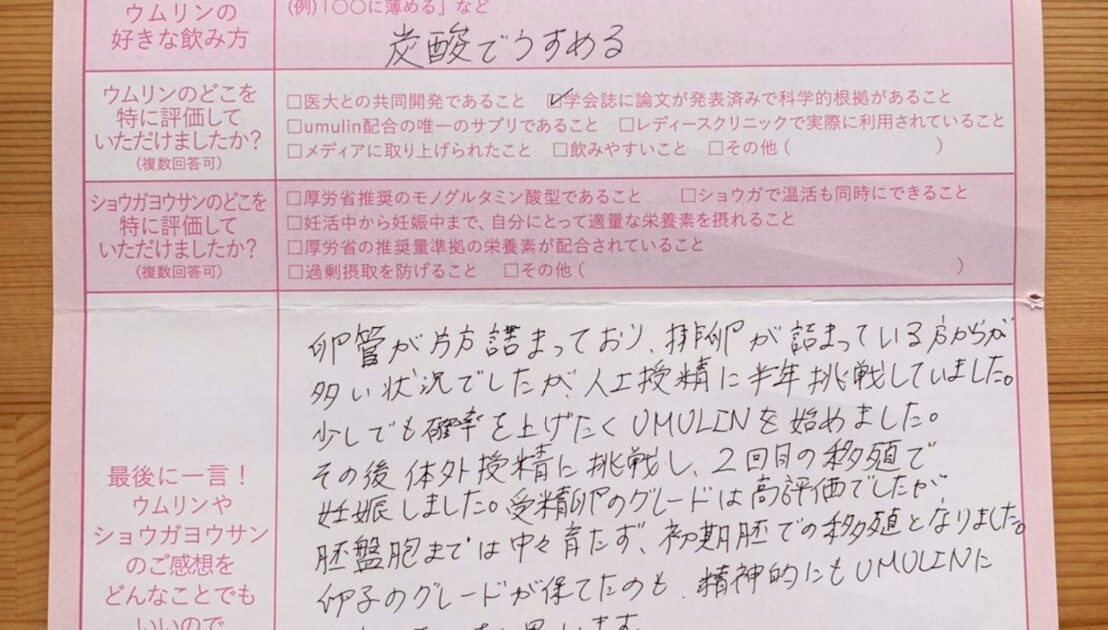 ウムリンの
好きな飲み方
(例)「〇〇に薄める」など
炭酸でうすめる
ウムリンのどこを
特に評価して
いただけましたか?
(複数回答可)
□医大との共同開発であること ☑学会誌に論文が発表済みで科学的根拠があること
□umulin配合の唯一のサプリであること □レディースクリニックで実際に利用されていること
□メディアに取り上げられたこと □飲みやすいこと □その他( )
ショウガヨウサンのどこを
特に評価して
いただけましたか?
(複数回答可)
□厚労省推奨のモノグルタミン酸型であること □ショウガで温活も同時にできること
□妊活中から妊娠中まで、自分にとって適量な栄養素を摂れること
□厚労省の推奨量準拠の栄養素が配合されていること
□過剰摂取を防げること □その他( )
最後に一言!
ウムリンや
ショウガヨウサン
のご感想を
どんなことでも
いいので
卵管が片方詰まっており、排卵が詰まっている方からが
多い状況でしたが、人工授精に半年挑戦していました。
少しでも確率を上げたくUMULINを始めました。
その後体外授精に挑戦し、2回目の移殖で
妊娠しました。受精卵のグレードは高評価でしたが
胚盤胞までは中々育たず、初期胚での移殖となりました。
卵子のグレードが保てたのも、精神的にもUMULINに
思います。